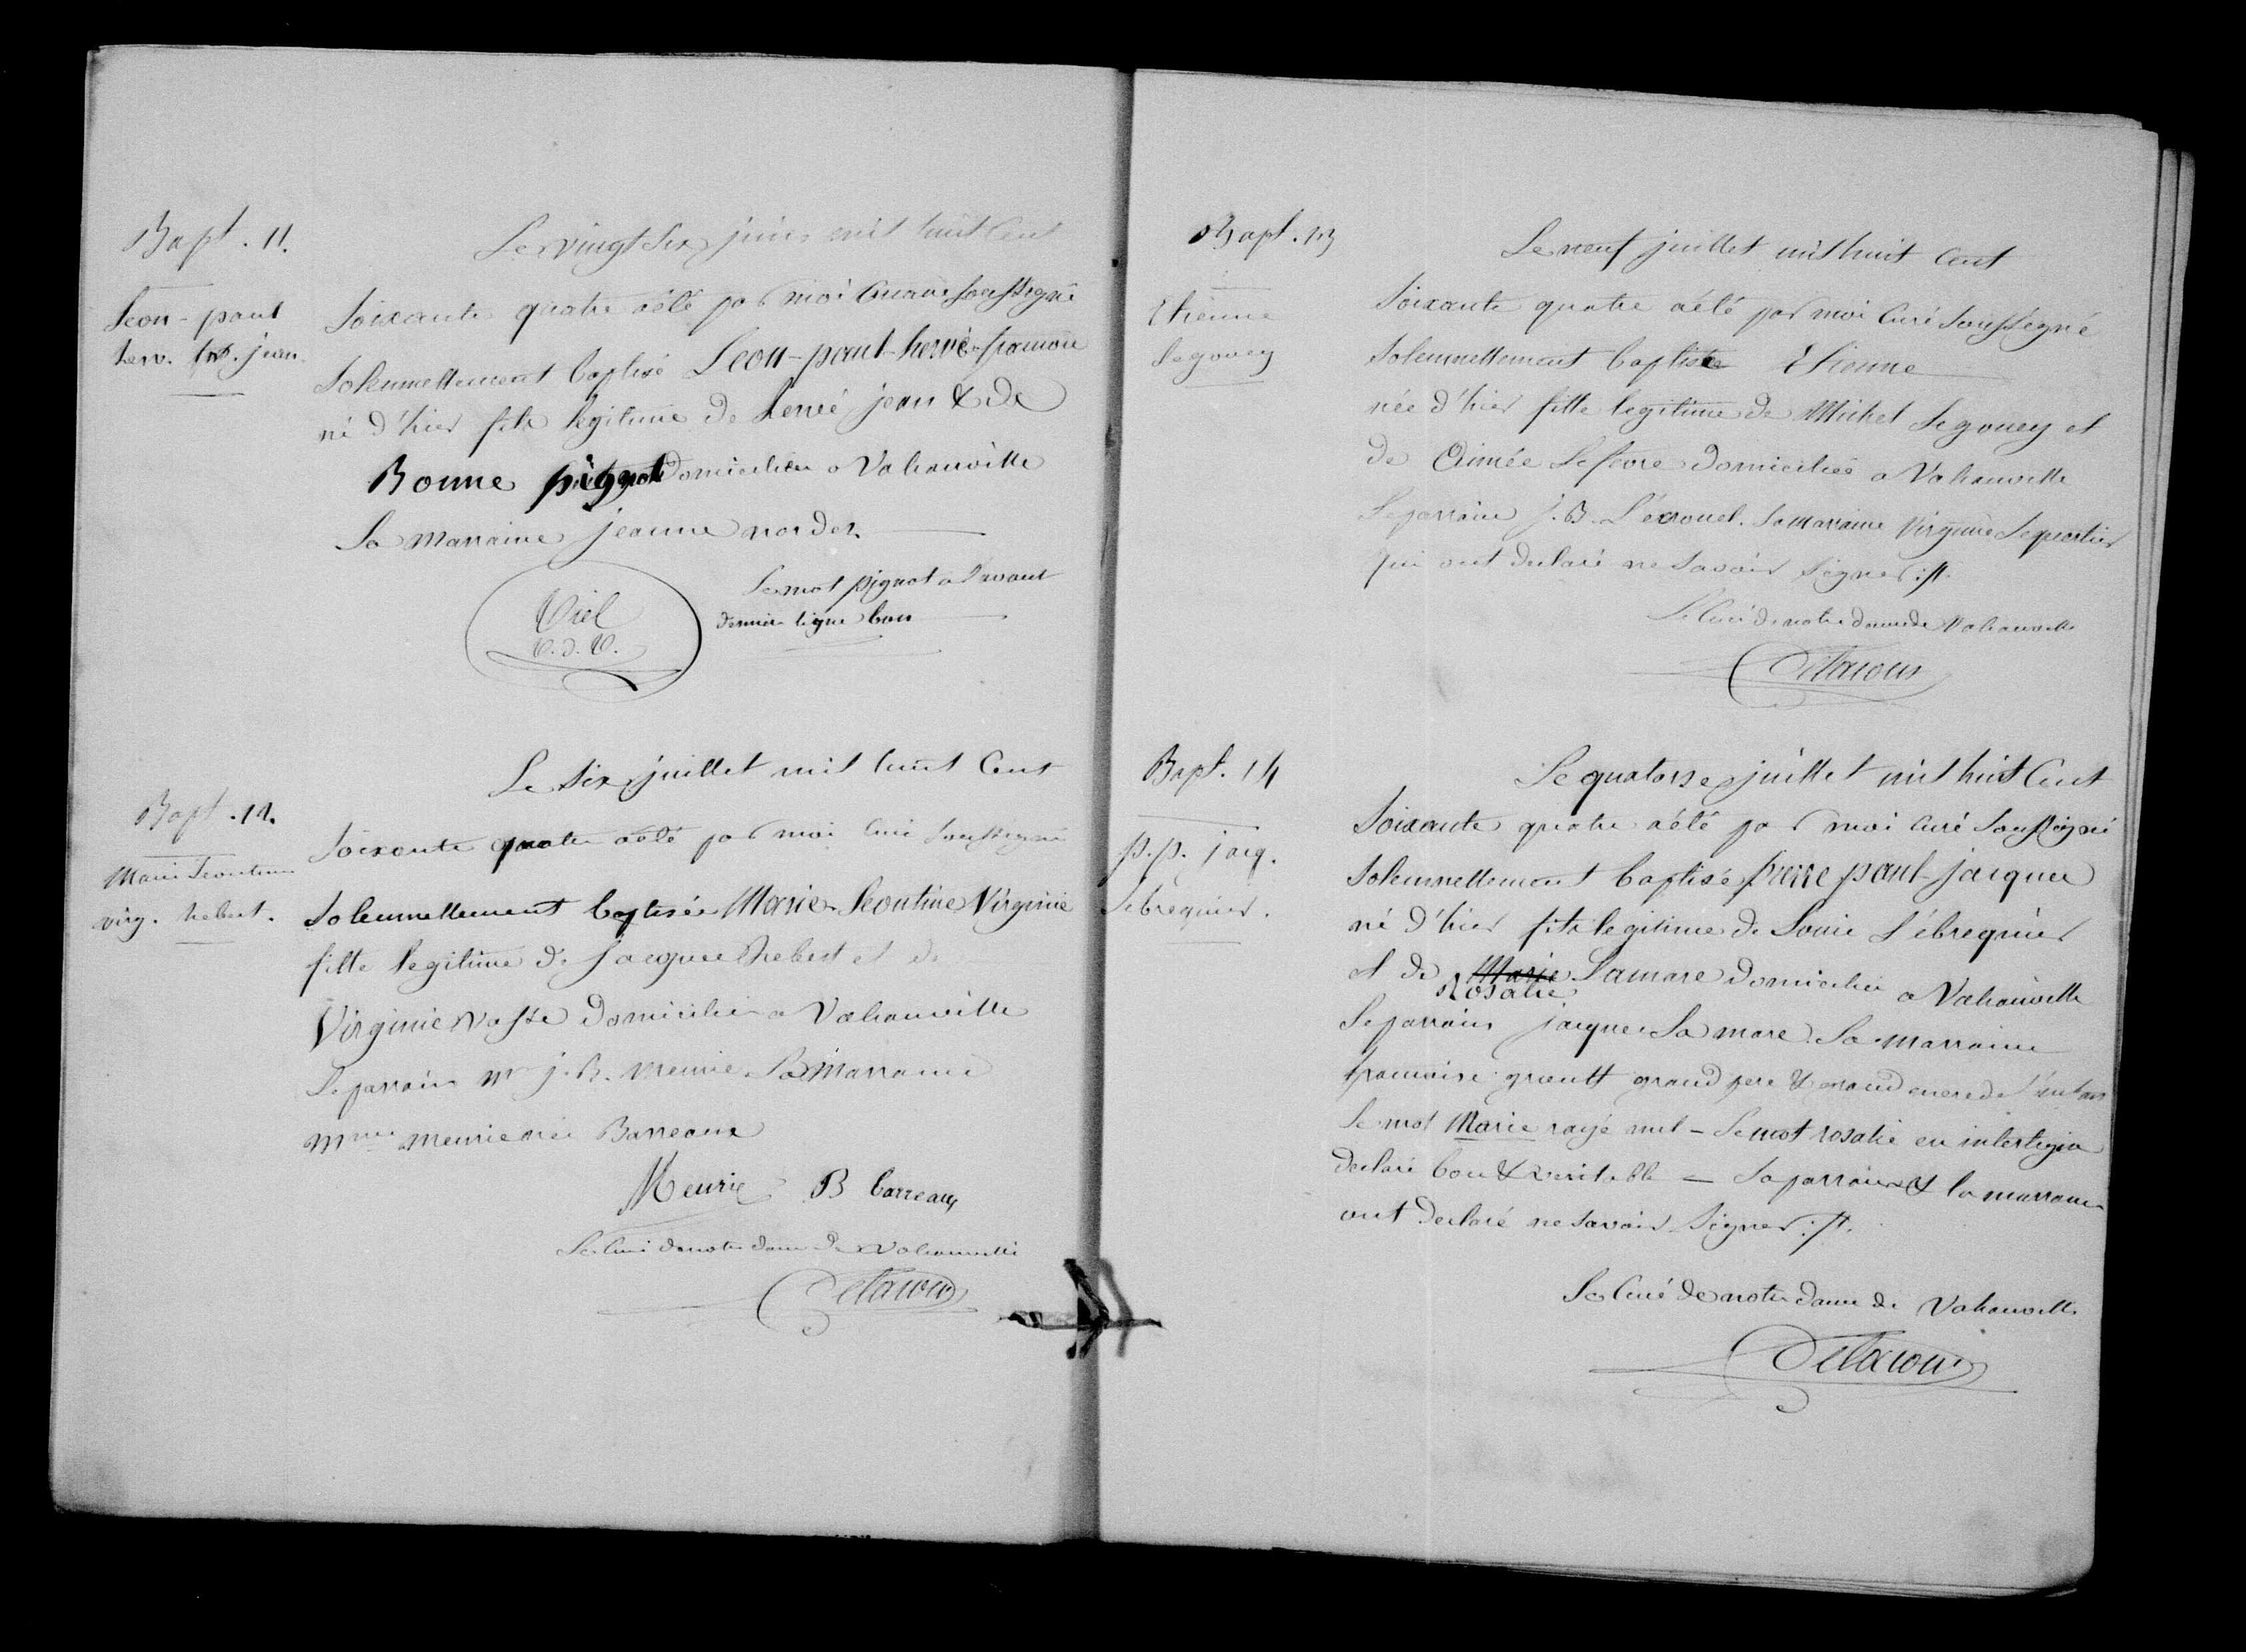 Bapt. 11.
Leon-paul
herv. fr. jean.
Le vingt six juin mil huit Cent
Soixante quatre a été par moi Curé soussigné
Solennellement baptisé Leon-paul-hervé-
né d'hier fils legitime de hervé jean & de
Bonne pignot Domiciliés a Vahouville
La Marraine jeanne
Le mot pignot a l'avant
dernière ligne bon
Viel
C. d. V.
Bapt. 12.
Marie Leontine
virg. hebert.
Le Six juillet mil huit Cent
Soixante quatre a été par moi Curé Soussigné
Solennellement baptisée Marie-Leontine Virginie
fille legitime de Jacque hebert et de
Virginie Vasse Domiciliés a Vahouville
Le parrain Mr J. B. Meurie La Marraine
Mme Meurie née Barreaux
Meurie B barreaux
Le Curé de notre dame de Vahouville
Bapt. 13
Etienne
Legouey
Le neuf juillet mil huit Cent
Soixante quatre a été par moi Curé Soussigné
Solennellement baptisée Etienne
née d'hier fille legitime de Michel Legouey et
de Aimée Lefevre Domiciliés a Vahouville
Le parrain J. B. Lécrouel. La Marraine Virginie
qui ont declaré ne Savoir Signer
Le Curé de notre dame de Vahouville
Bapt. 14
p. p. jacq.
Lebrequier.
Le quatorse juillet mil huit Cent
Soixante quatre a été par moi Curé Soussigné
Solennellement baptisé pierre paul jacques
né d'hier fils legitime de Louis Lébrequier
et de Marie Lamare Domiciliés a Vahouville
Rosalie
Le parrain jacques La mare La marraine
francoise grand pere & grand mere de l'enfant
Le mot Marie rayé nul - Le mot rosalie en interligne
declaré bon & veritable - Le parrain & la marraine
ont declaré ne Savoir Signer
Le Curé de notre dame de Vahouville